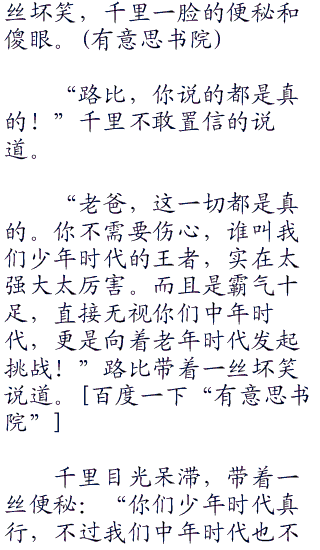 丝坏笑，千里一脸的便秘和
傻眼。(有意思书院)
“路比，你说的都是真
的！”千里不敢置信的说
道。
“老爸，这一切都是真
的。你不需要伤心，谁叫我
们少年时代的王者，实在太
强大太厉害。而且是霸气十
足，直接无视你们中年时
代，更是向着老年时代发起
挑战！”路比带着一丝坏笑
说道。[百度一下“有意思书
院”]
千里目光呆滞，带着一
丝便秘：“你们少年时代真
行，不过我们中年时代也不